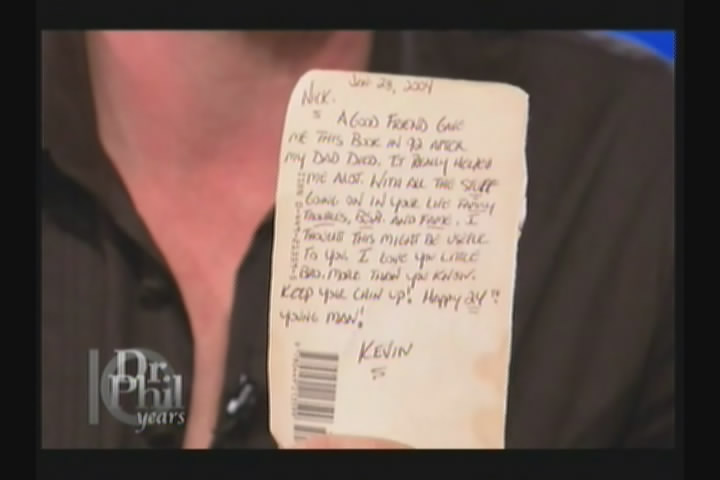 Jan 28, 2004
Nick.
A Good Friend Gave
me this Book in 92 after
my Dad Died. It Really Helped
me alot. With all the stuff
Going on in your life Family
Troubles, BSB. and Fame. I
thought this might be useful
to you. I love you little
Bro. more than you know.
Keep your chin up! Happy 24th
young man!
Kevin
Dr.
Phil
10 years